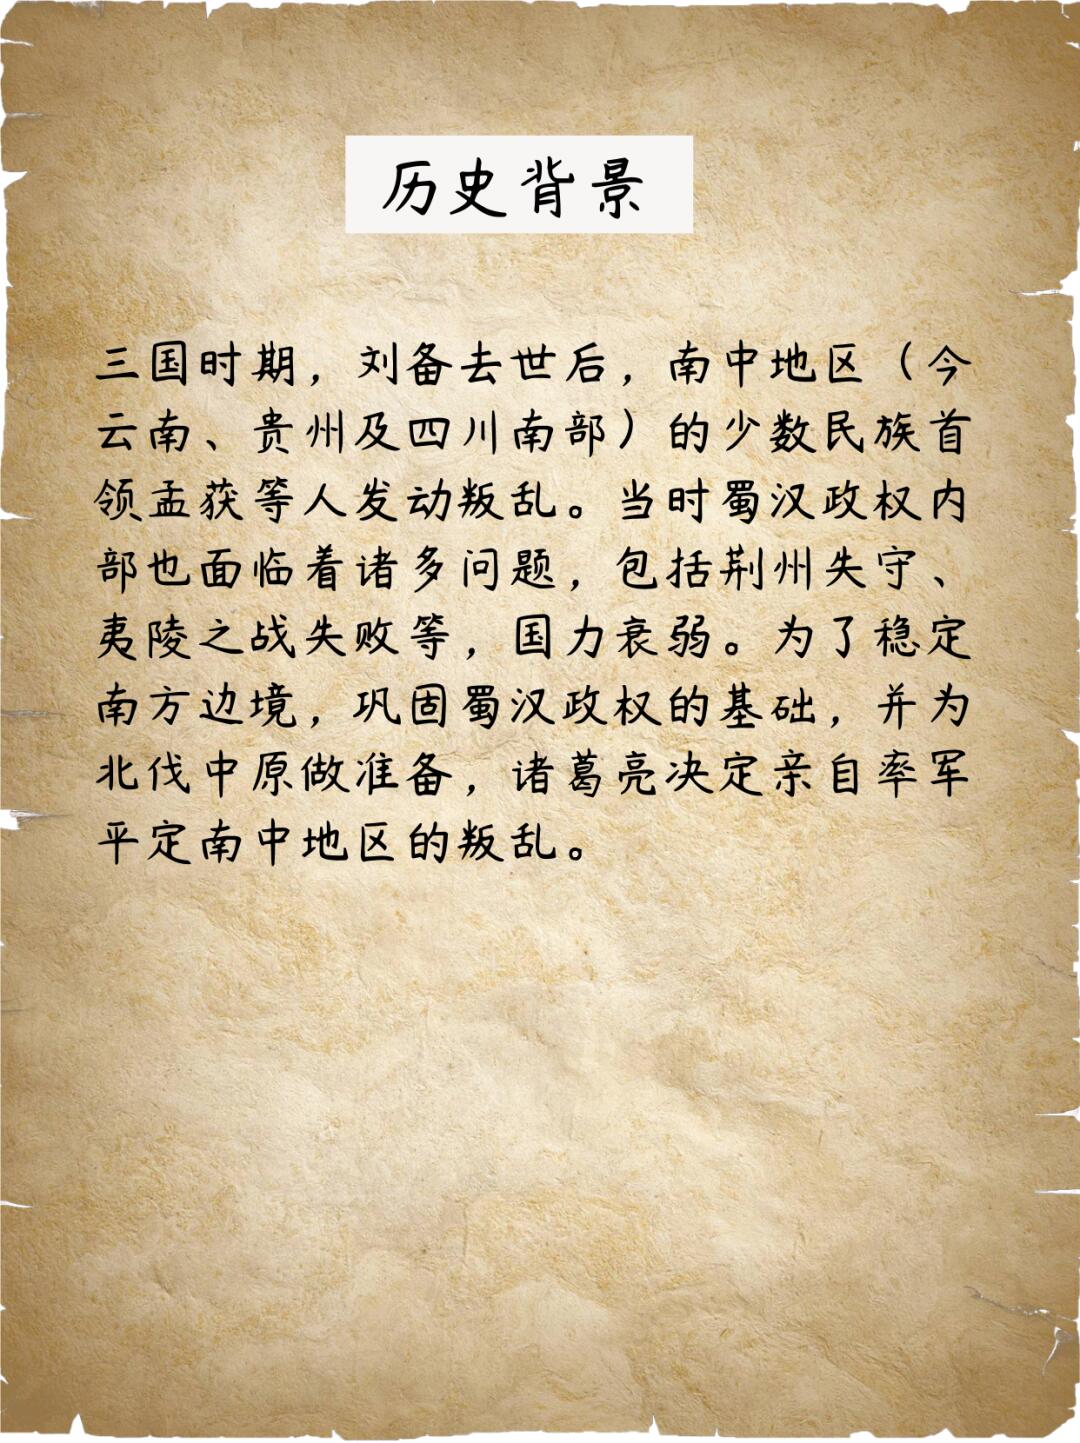 历史背景
三国时期，刘备去世后，南中地区（今
云南、贵州及四川南部）的少数民族首
领孟获等人发动叛乱。当时蜀汉政权内
部也面临着诸多问题，包括荆州失守、
夷陵之战失败等，国力衰弱。为了稳定
南方边境，巩固蜀汉政权的基础，并为
北伐中原做准备，诸葛亮决定亲自率军
平定南中地区的叛乱。